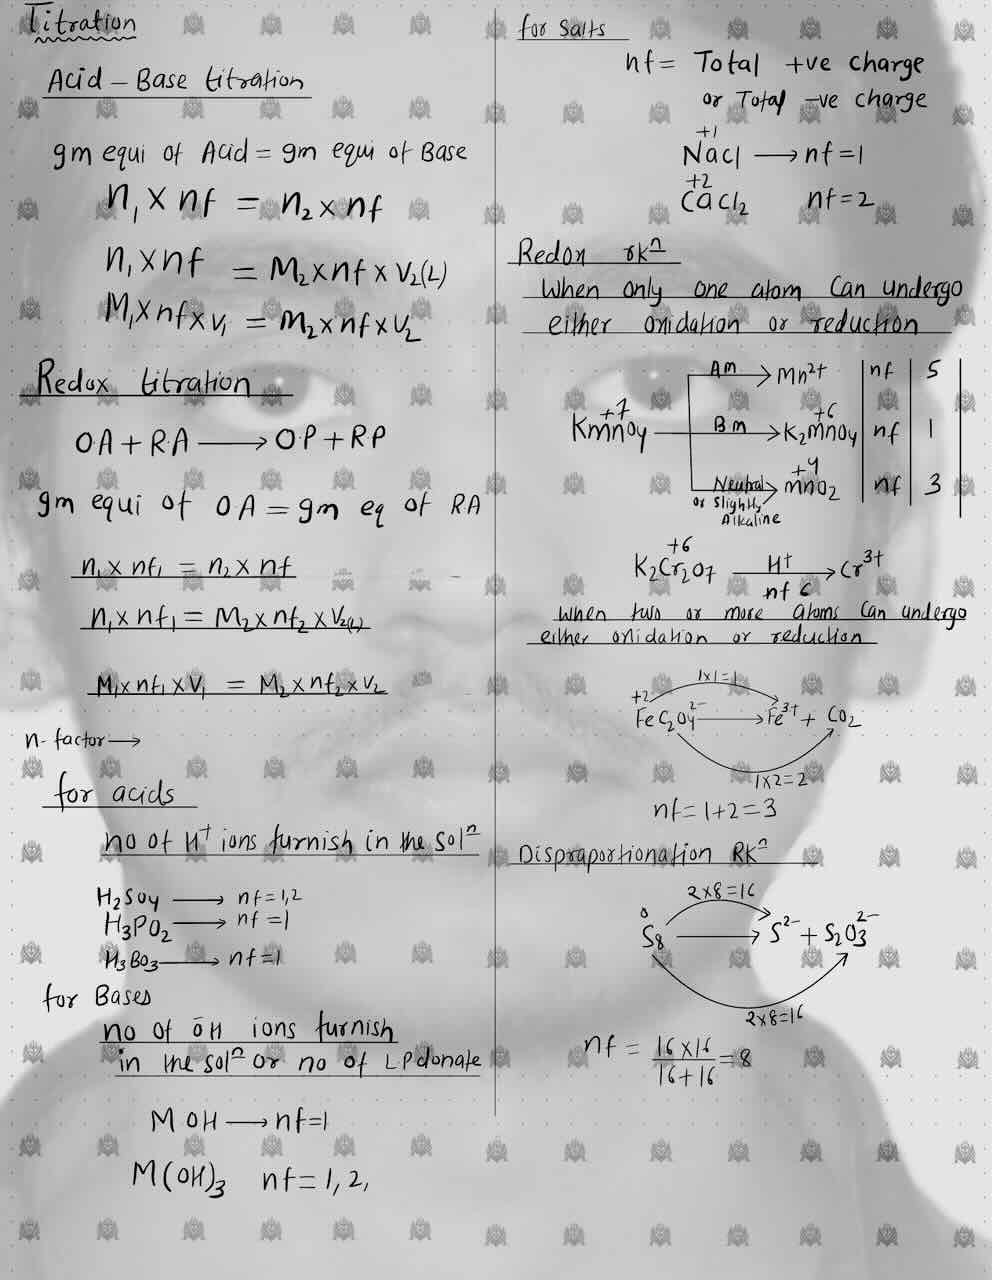 Titration
Acid - Base titration
gm equi of Acid = gm equi of Base
n₁ × nf = n₂ × nf
n₁ × nf = M₂ × nf × V₂(L)
M₁ × nf × V₁ = M₂ × nf × V₂
Redox titration
OA + RA ⟶ OP + RP
gm equi of OA = gm eq of RA
n₁ × nf₁ = n₂ × nf
n₁ × nf₁ = M₂ × nf₂ × V₂(L)
M₁ × nf₁ × V₁ = M₂ × nf₂ × V₂
n-factor ⟶
for acids
no of H⁺ ions furnish in the solⁿ
H₂SO₄ ⟶ nf = 1,2
H₃PO₂ ⟶ nf = 1
H₃BO₃ ⟶ nf = 1
for Bases
no of ŌH ions furnish
in the solⁿ or no of LP donate
MOH ⟶ nf = 1
M(OH)₃ nf = 1, 2,
for Salts
nf = Total +ve charge
or Total -ve charge
+1
NaCl ⟶ nf = 1
+2
CaCl₂ nf = 2
Redox rxⁿ
When only one atom can undergo
either oxidation or reduction
Am ⟶ Mn²⁺ | nf | 5
+7 +6
KMnO₄ Bm ⟶ K₂MnO₄ | nf | 1
+4
Neutral ⟶ MnO₂ | nf | 3
or Slightly
Alkaline
+6
K₂Cr₂O₇ H⁺ ⟶ Cr³⁺
nf 6
When two or more atoms can undergo
either oxidation or reduction
1×1=1
+2
FeC₂O₄²⁻ ⟶ Fe³⁺ + CO₂
1×2=2
nf = 1+2 = 3
Dispraportionation Rxⁿ
2×8=16
0
S₈ ⟶ S²⁻ + S₂O₃²⁻
2×8=16
nf = 16×16/16+16 = 8